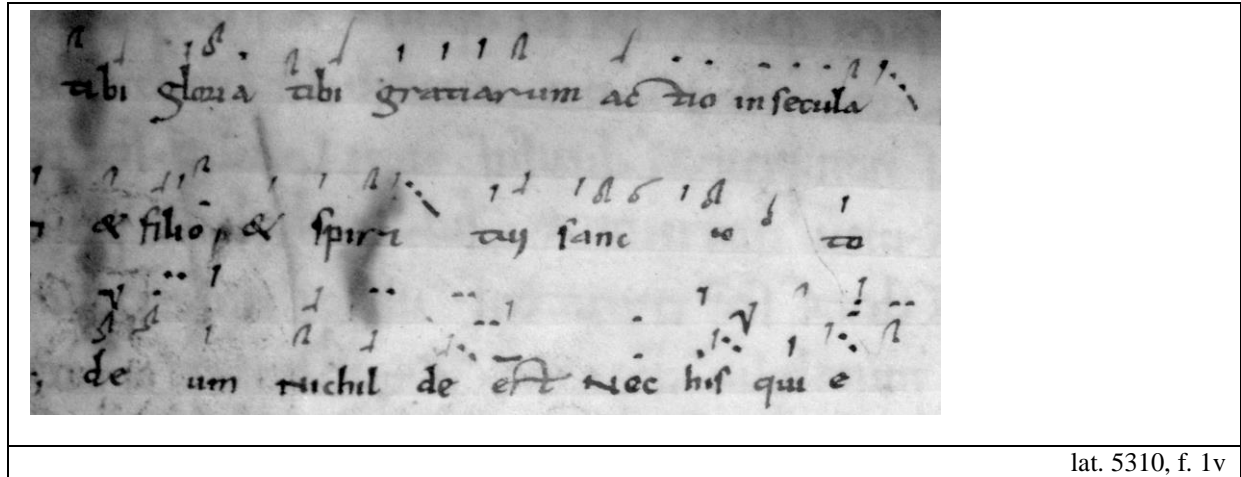 tibi gloria tibi gratiarum ac tio in secula
& filio & spiri tui sanc to
de um nichil de est nec his qui e
lat. 5310, f. 1v